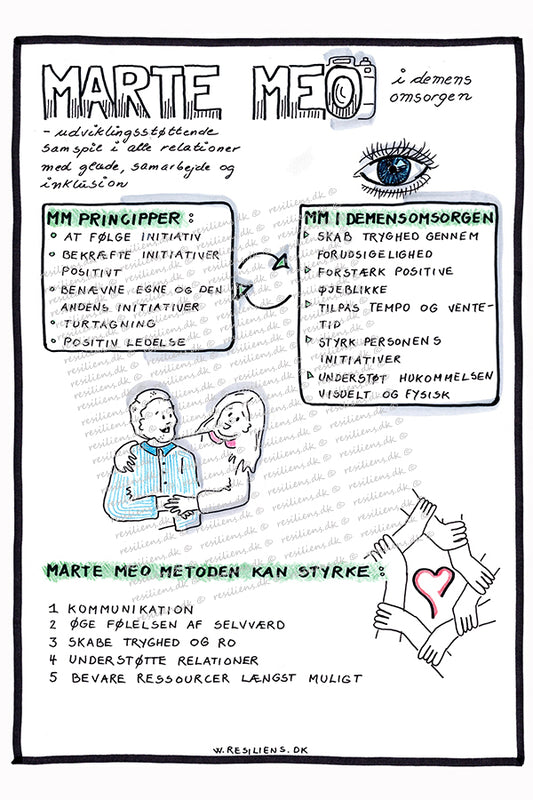 MARTE MEO
i demens
omsorgen
- udviklingsstøttende
samspil i alle relationer
med glæde, samarbejde og
inklusion
MM PRINCIPPER :
AT FØLGE INITIATIV
BEKRÆFTE INITIATIVER
POSITIVT
BENÆVNE EGNE OG DEN
ANDENS INITIATIVER
TURTAGNING
POSITIV LEDELSE
MM I DEMENSOMSORGEN
SKAB TRYGHED GENNEM
FORUDSIGELIGHED
FORSTÆRK POSITIVE
ØJEBLIKKE
TILPAS TEMPO OG VENTE-
TID
STYRK PERSONENS
INITIATIVER
UNDERSTØT HUKOMMELSEN
VISUELT OG FYSISK
MARTE MEO METODEN KAN STYRKE :
1 KOMMUNIKATION
2 ØGE FØLELSEN AF SELVVÆRD
3 SKABE TRYGHED OG RO
4 UNDERSTØTTE RELATIONER
5 BEVARE RESSOURCER LÆNGST MULIGT
W.RESILIENS.DK
resiliens.dk ©